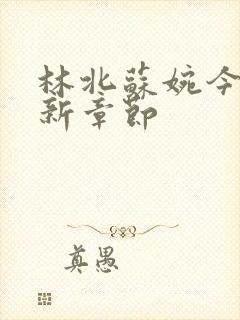 林北蘇婉今
新章節
真愚